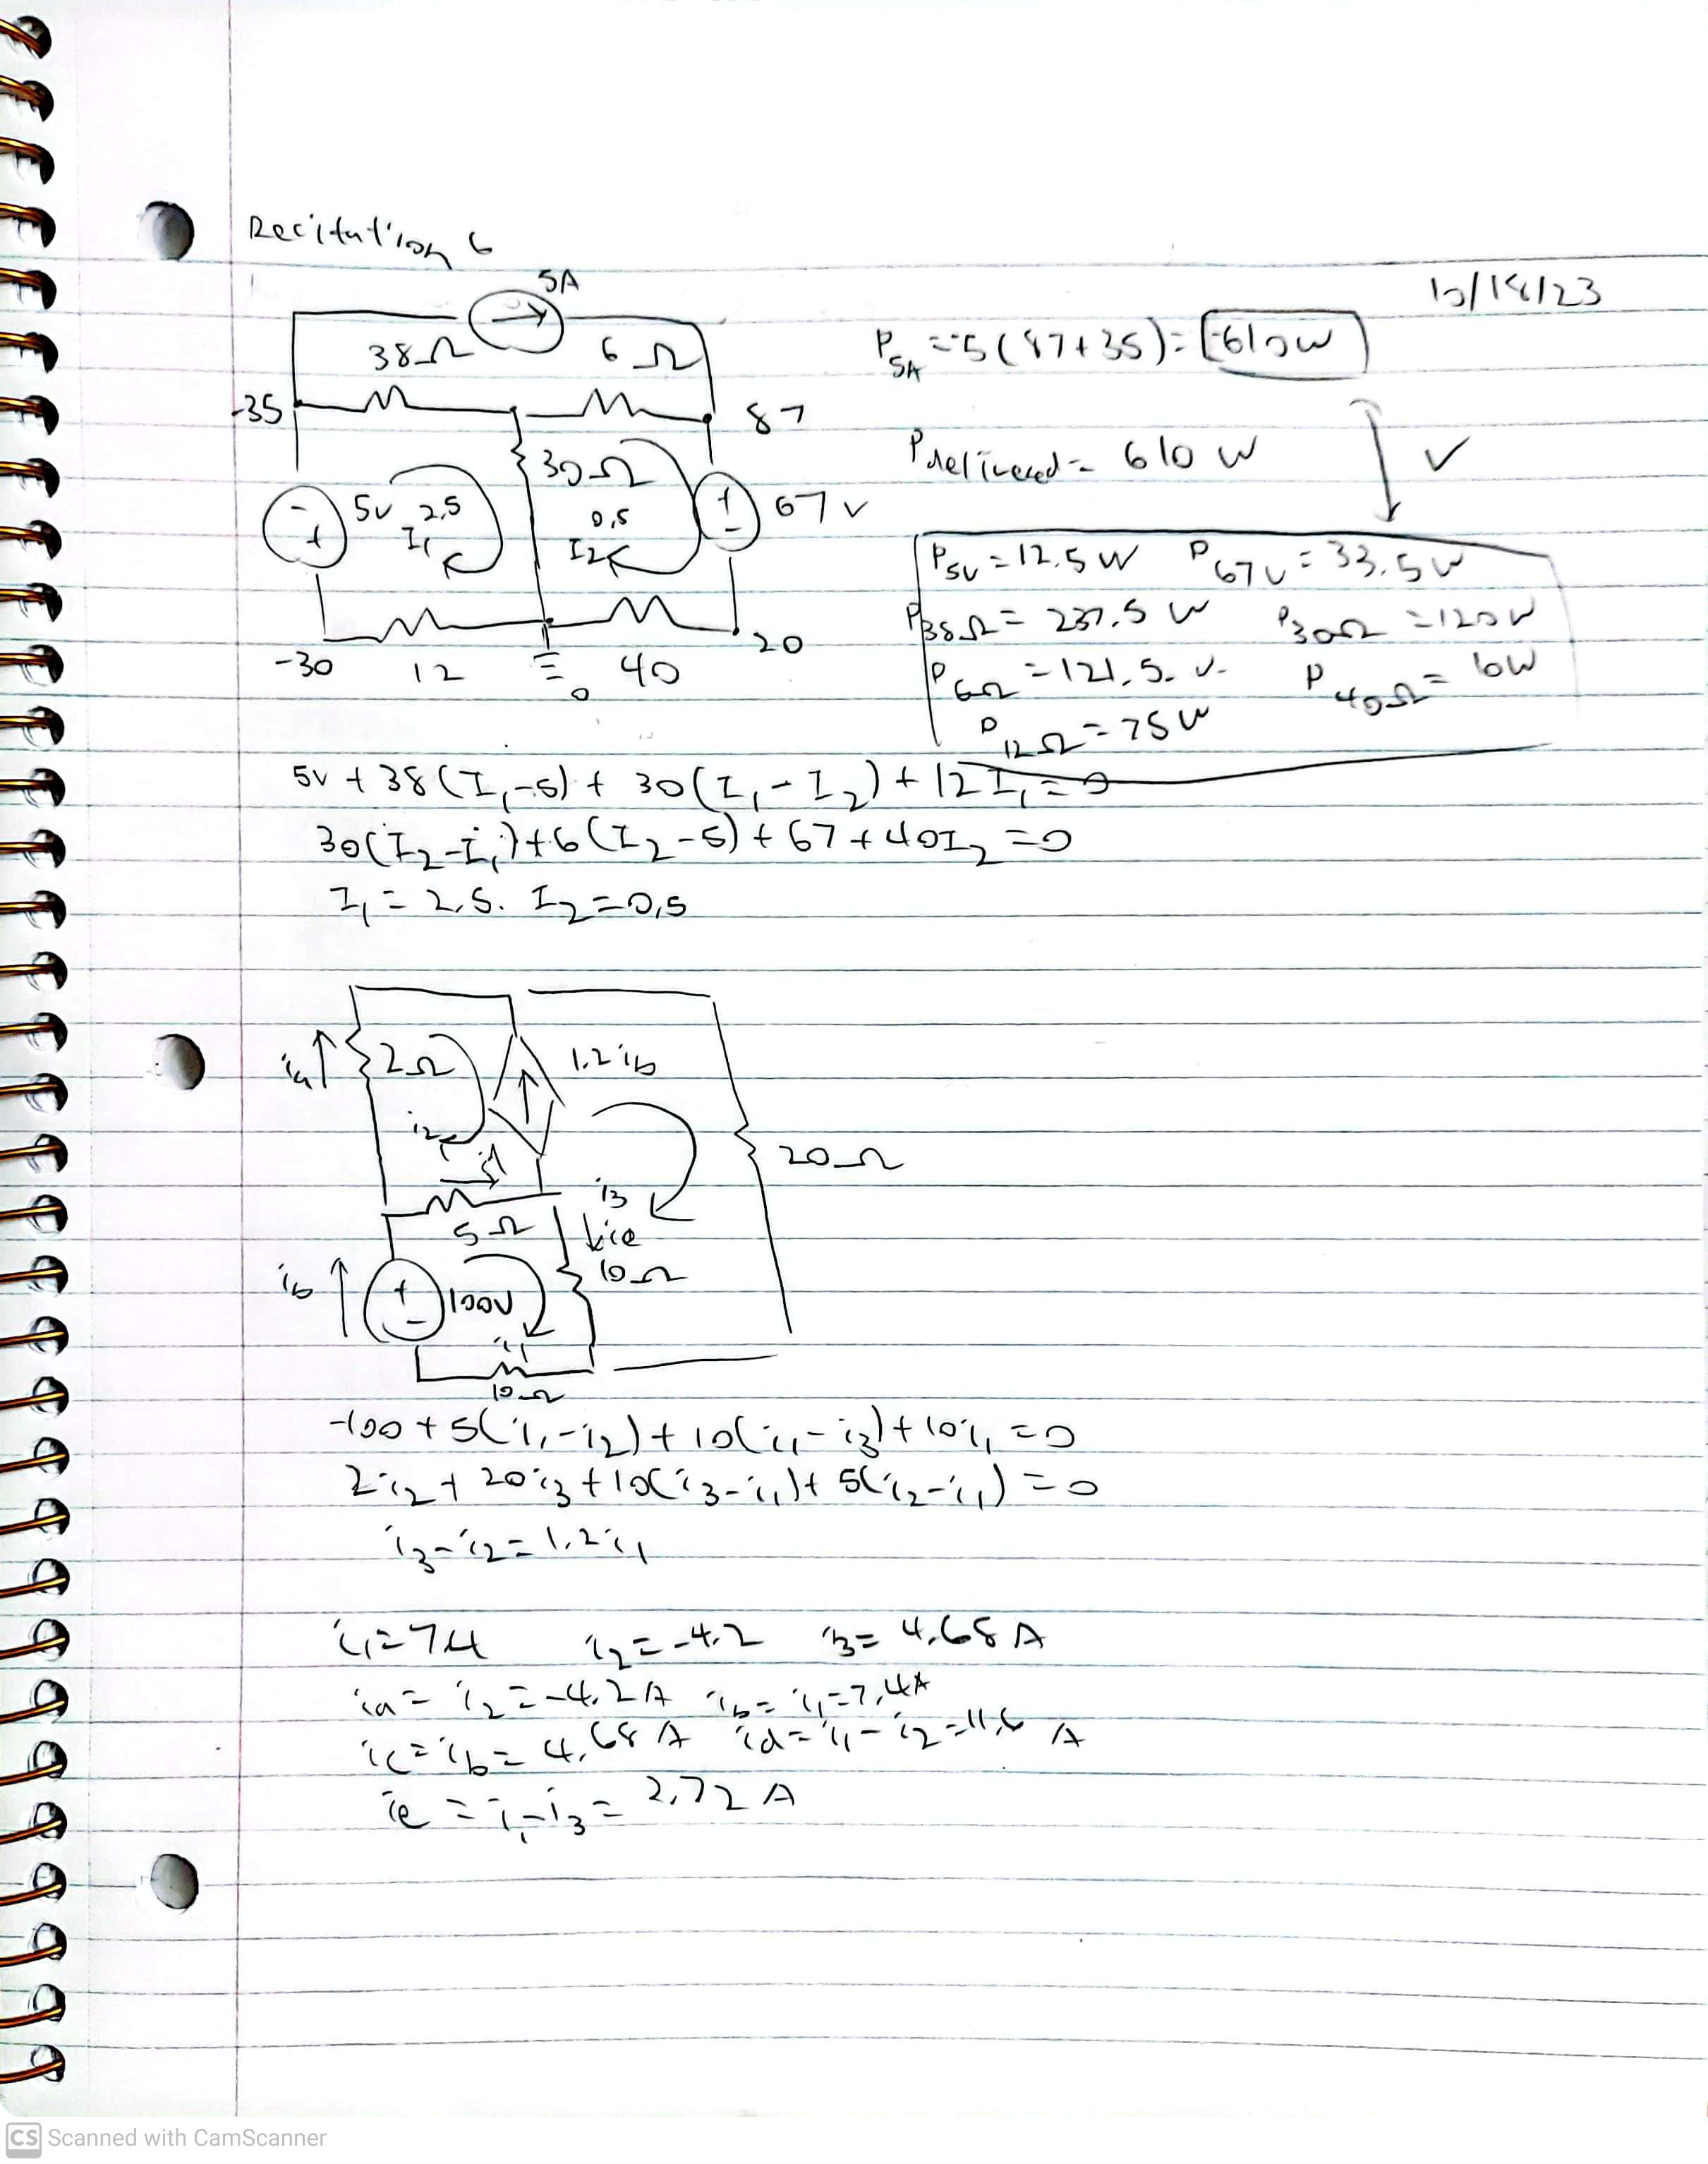 Recitation 6
10/18/23
5A
38Ω 6Ω
-35 87
30Ω
5V 2.5 I₁
0.5 I2
67V
- +
+ -
-30 12 0 40 20
P5A = -5(87+35) = -610W
Pdelivered = 610 W ✓
P5V = 12.5 W P67V = 33.5W
P38Ω = 237.5 W P30Ω = 120W
P6Ω = 121.5 W P40Ω = 10W
P12Ω = 75W
5V + 38(I₁-5) + 30(I₁-I₂) + 12I₁ = 0
30(I₂-I₁) + 6(I₂-5) + 67 + 40I₂ = 0
I₁ = 2.5. I₂ = 0.5
ia 2Ω 1.2ib
i2
id
20Ω
i3
5Ω ie
10Ω
ib + - 100V
i1
10Ω
-100 + 5(i₁-i₂) + 10(i₁-i₃) + 10i₁ = 0
2i₂ + 20i₃ + 10(i₃-i₁) + 5(i₂-i₁) = 0
i₃-i₂ = 1.2i₁
i₁ = 7.4 i₂ = -4.2 i₃ = 4.68 A
ia = i₂ = -4.2A ib = i₁ = 7.4A
ic = ib = 4.68 A id = i₁-i₂ = 11.6 A
ie = i₁-i₃ = 2.72 A
CS Scanned with CamScanner